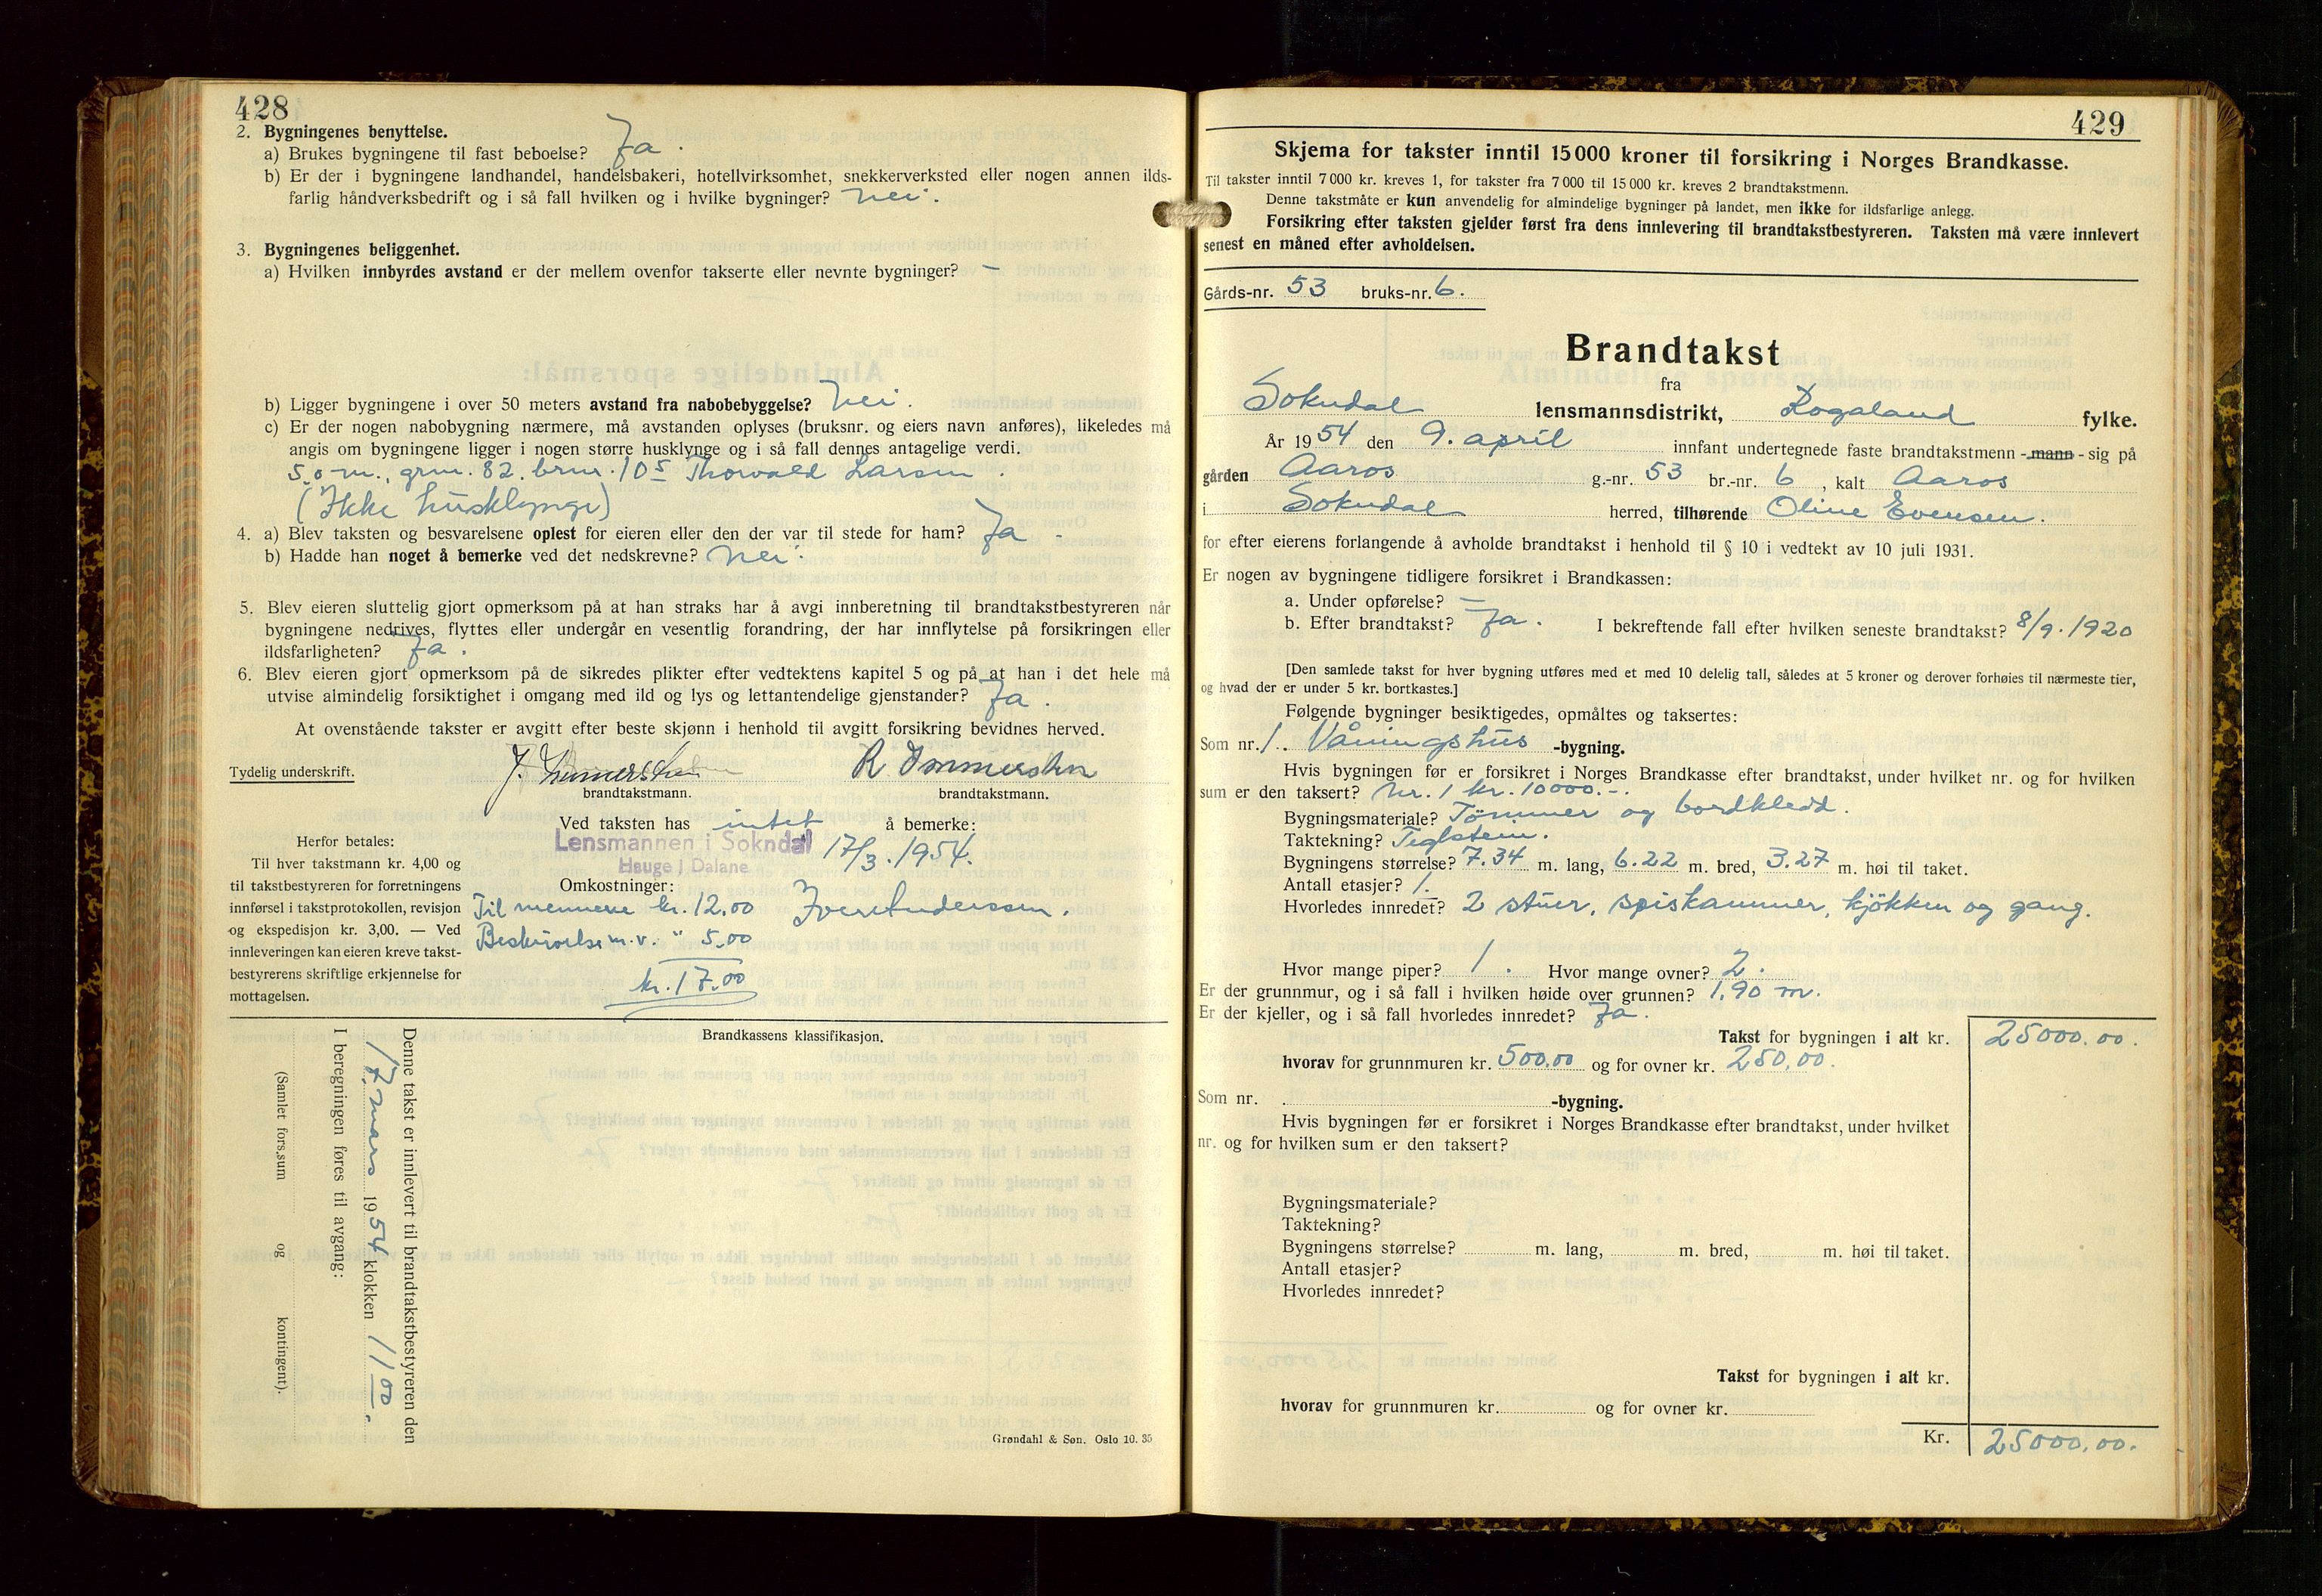 428
2. Bygningenes benyttelse.
a) Brukes bygningene til fast beboelse? Ja.
b) Er der i bygningene landhandel, handelsbakeri, hotellvirksomhet, snekkerverksted eller nogen annen ilds-
farlig håndverksbedrift og i så fall hvilken og i hvilke bygninger? Nei.
3. Bygningenes beliggenhet.
a) Hvilken innbyrdes avstand er der mellem ovenfor takserte eller nevnte bygninger? –
b) Ligger bygningene i over 50 meters avstand fra nabobebyggelse? Nei.
c) Er der nogen nabobygning nærmere, må avstanden oplyses (bruksnr. og eiers navn anføres), likeledes må
angis om bygningene ligger i nogen større husklynge og i så fall dennes antagelige verdi.
5.0 m., grnr. 82. brnr. 105 Thorvald Larsen
(Ikke husklynge)
4. a) Blev taksten og besvarelsene oplest for eieren eller den der var til stede for ham? Ja -
b) Hadde han noget å bemerke ved det nedskrevne? Nei.
5. Blev eieren sluttelig gjort opmerksom på at han straks har å avgi innberetning til brandtakstbestyreren når
bygningene nedrives, flyttes eller undergår en vesentlig forandring, der har innflytelse på forsikringen eller
ildsfarligheten? Ja.
6. Blev eieren gjort opmerksom på de sikredes plikter efter vedtektens kapitel 5 og på at han i det hele må
utvise almindelig forsiktighet i omgang med ild og lys og lettantendelige gjenstander? Ja.
At ovenstående takster er avgitt efter beste skjønn i henhold til avgitt forsikring bevidnes herved.
Tydelig underskrift. J. Immerstein R Immerstein
brandtakstmann. brandtakstmann.
Ved taksten has intet å bemerke:
Lensmannen i Sokndal 17/3. 1954.
Hauge i Dalane
Herfor betales:
Til hver takstmann kr. 4,00 og
til takstbestyreren for forretningens
innførsel i takstprotokollen, revisjon
og ekspedisjon kr. 3,00. — Ved
innleveringen kan eieren kreve takst-
bestyrerens skriftlige erkjennelse for
mottagelsen.
Omkostninger:
Til mennene kr. 12.00
Beskrivelse m.v. " 5.00
kr. 17.00
Brandkassens klassifikasjon.
Denne takst er innlevert til brandtakstbestyreren den
17. mars 1954 klokken 11 00.
I beregningen føres til avgang:
(Samlet fors.sum og kontingent).
Grøndahl & Søn. Oslo 10. 35
429
Skjema for takster inntil 15000 kroner til forsikring i Norges Brandkasse.
Til takster inntil 7000 kr. kreves 1, for takster fra 7000 til 15000 kr. kreves 2 brandtakstmenn.
Denne takstmåte er kun anvendelig for almindelige bygninger på landet, men ikke for ildsfarlige anlegg.
Forsikring efter taksten gjelder først fra dens innlevering til brandtakstbestyreren. Taksten må være innlevert
senest en måned efter avholdelsen.
Gårds-nr. 53 bruks-nr. 6.
Brandtakst
fra
Sokndal lensmannsdistrikt, Rogaland fylke.
År 1954 den 9. april innfant undertegnede faste brandtakstmenn - mann - sig på
gården Aaros g.-nr. 53 br.-nr. 6, kalt Aaros
i Sokndal herred, tilhørende Oline Evensen.
for efter eierens forlangende å avholde brandtakst i henhold til § 10 i vedtekt av 10 juli 1931.
Er nogen av bygningene tidligere forsikret i Brandkassen:
a. Under opførelse? –
b. Efter brandtakst? Ja. I bekreftende fall efter hvilken seneste brandtakst? 8/9. 1920
[Den samlede takst for hver bygning utføres med et med 10 delelig tall, således at 5 kroner og derover forhøies til nærmeste tier,
og hvad der er under 5 kr. bortkastes.]
Følgende bygninger besiktigedes, opmåltes og taksertes:
Som nr. 1. Våningshus -bygning.
Hvis bygningen før er forsikret i Norges Brandkasse efter brandtakst, under hvilket nr. og for hvilken
sum er den taksert? Nr. 1 kr. 10000.-.
Bygningsmateriale? Tömmer og bordkledd.
Taktekning? Teglstein.
Bygningens størrelse? 7.34 m. lang, 6.22 m. bred, 3.27 m. høi til taket.
Antall etasjer? 1.
Hvorledes innredet? 2 stuer, spiskammer, kjökken og gang.
Hvor mange piper? 1. Hvor mange ovner? 2.
Er der grunnmur, og i så fall i hvilken høide over grunnen? 1,90 m.
Er der kjeller, og i så fall hvorledes innredet? Ja.
Takst for bygningen i alt kr. 25000.00.
hvorav for grunnmuren kr. 500,00 og for ovner kr. 250,00.
Som nr. -bygning.
Hvis bygningen før er forsikret i Norges Brandkasse efter brandtakst, under hvilket
nr. og for hvilken sum er den taksert?
Bygningsmateriale?
Taktekning?
Bygningens størrelse? m. lang, m. bred, m. høi til taket.
Antall etasjer?
Hvorledes innredet?
Takst for bygningen i alt kr.
hvorav for grunnmuren kr. og for ovner kr.
Kr. 25000.00.